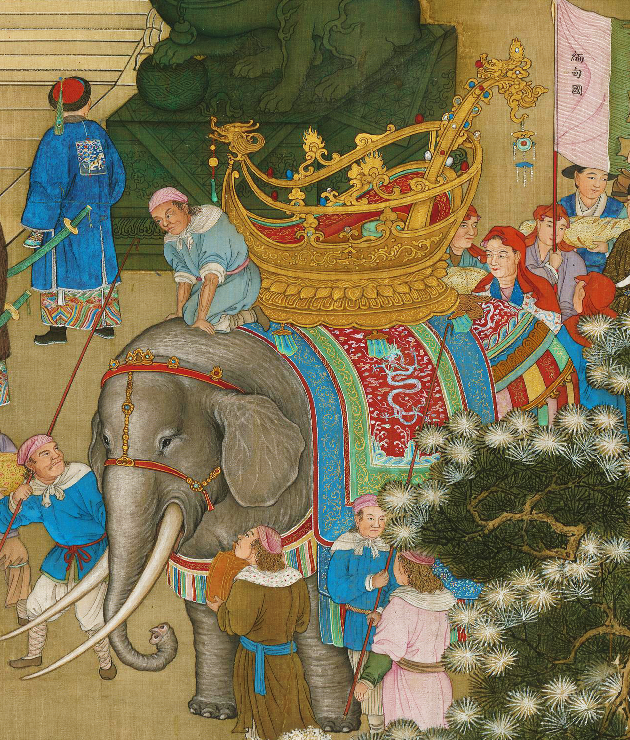 緬甸國